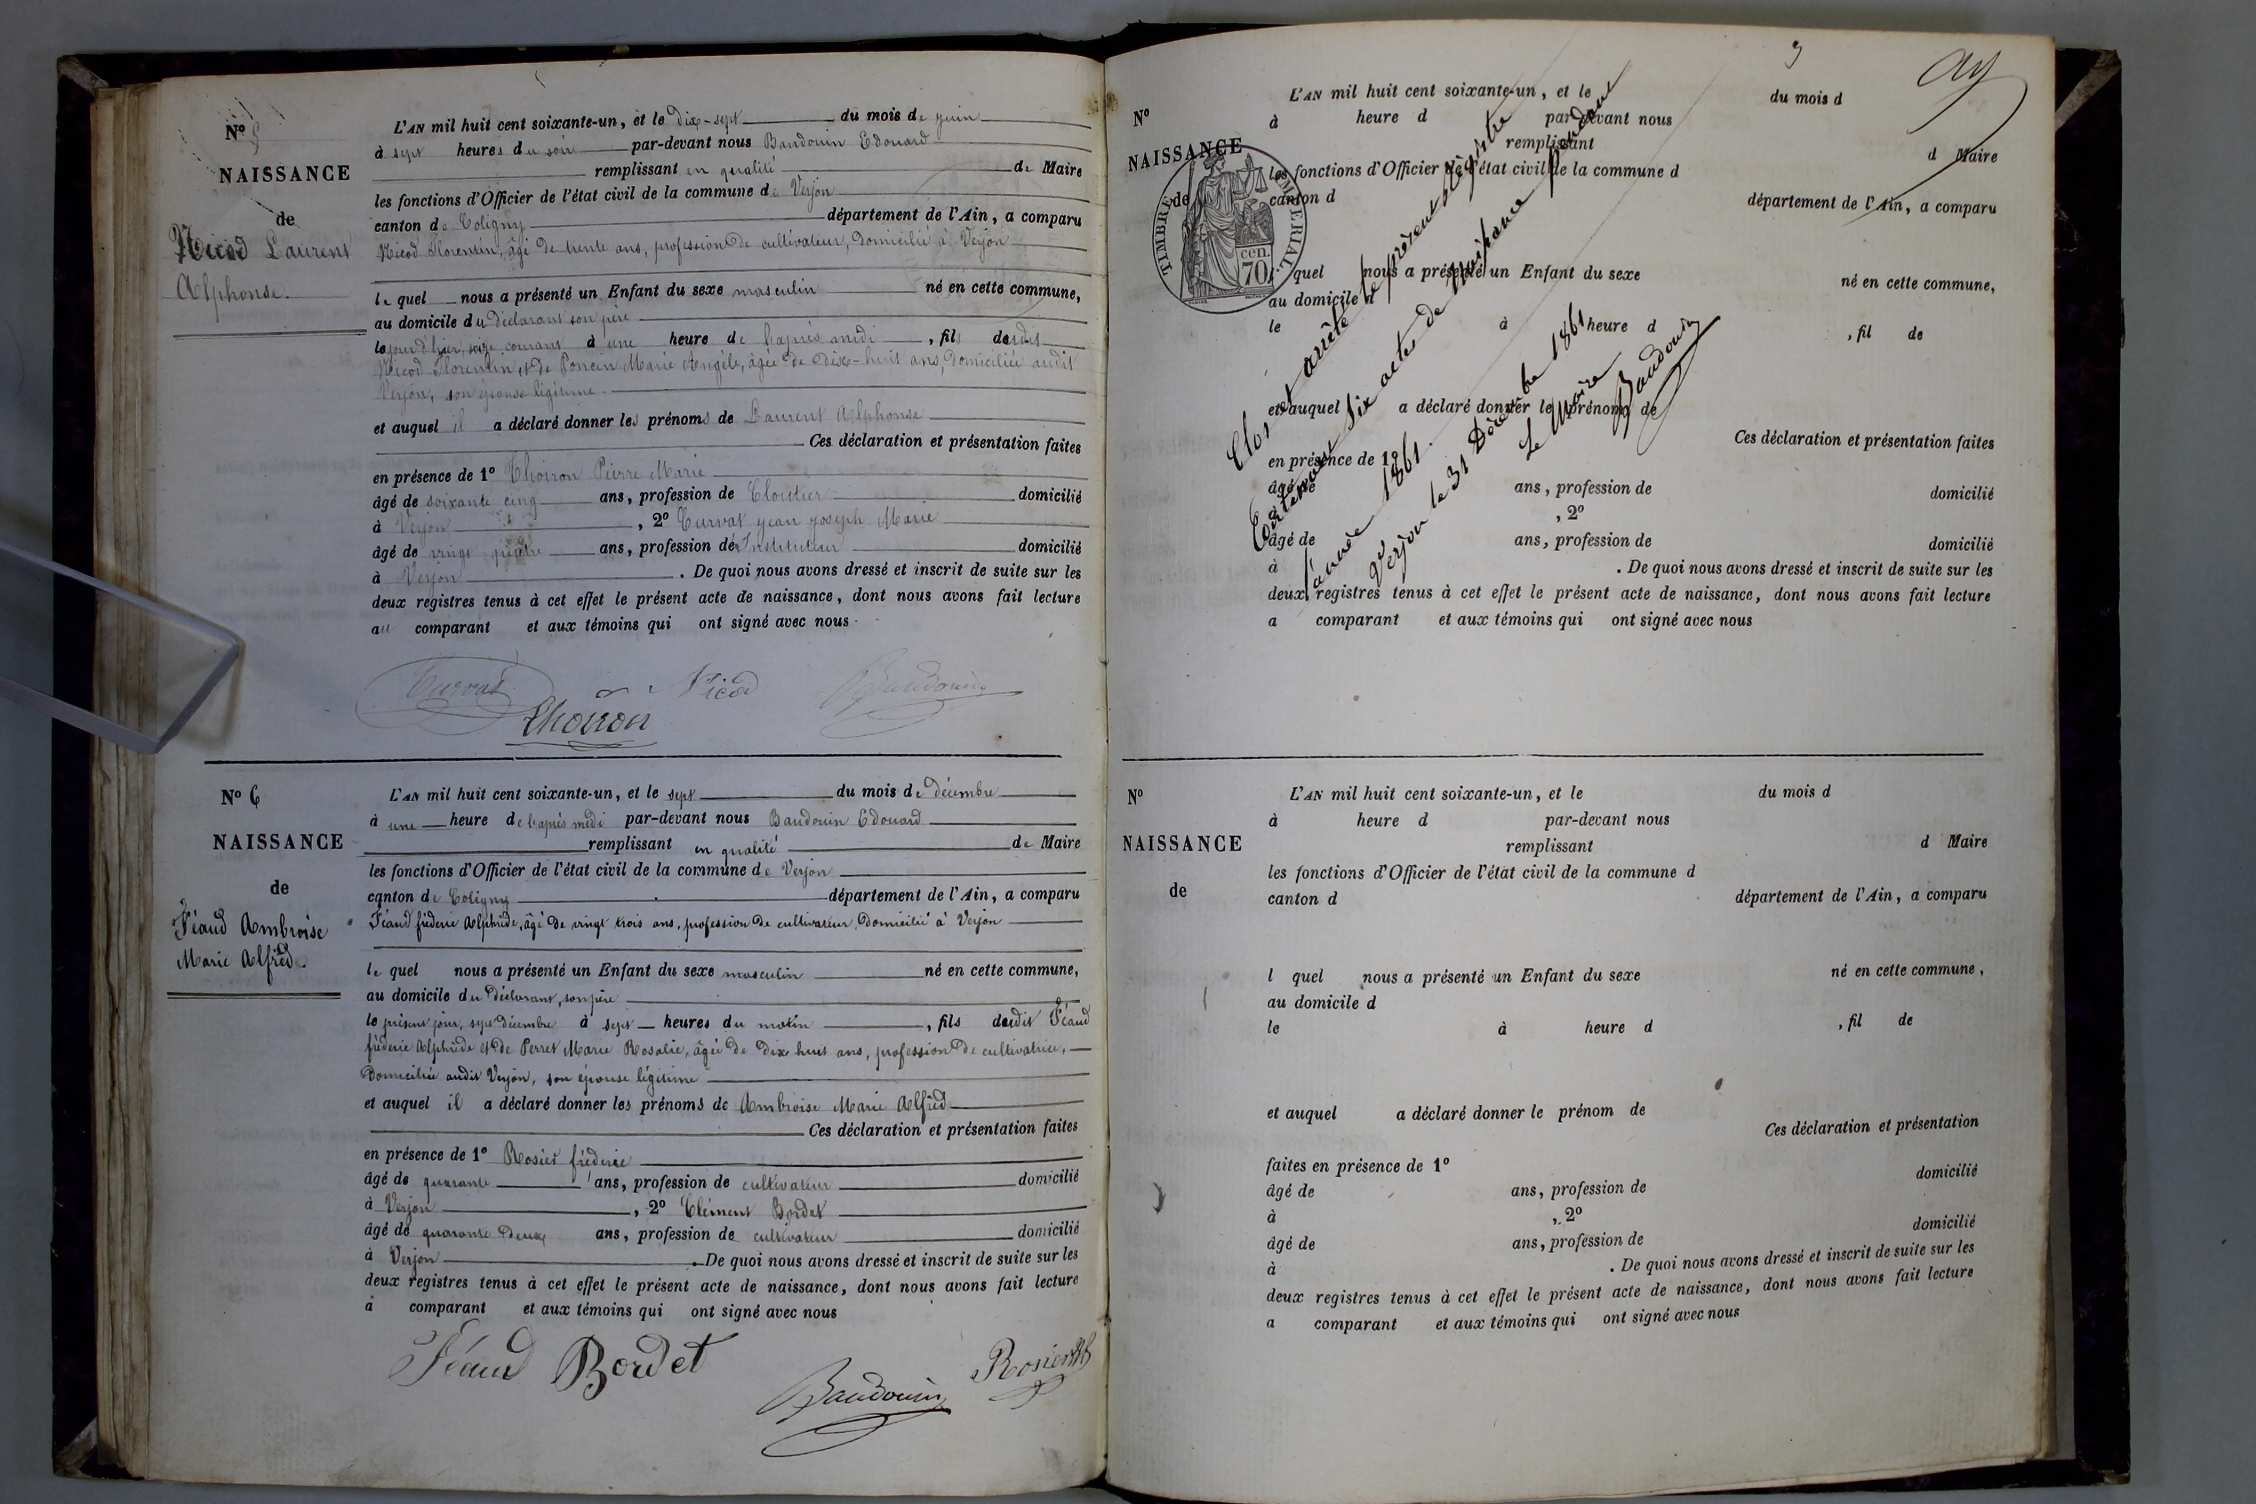 N° 5
NAISSANCE
de
Nicod Laurent
Alphonse.
L'AN mil huit cent soixante-un, et le dix-sept du mois de juin
à sept heures du soir par-devant nous Baudouin Edouard
remplissant en qualité de Maire
les fonctions d'Officier de l'état civil de la commune de Verjon
canton de Coligny département de l'Ain, a comparu
Nicod Florentin, âgé de trente ans, profession de cultivateur, domicilié à Verjon
le quel nous a présenté un Enfant du sexe masculin né en cette commune,
au domicile du déclarant son père
le jour d'hier, seize courant à une heure de l'après midi, fils dudit
Nicod Florentin et de Poncin Marie Angèle, âgée de dix-huit ans, domiciliée audit
Verjon, son épouse légitime.
et auquel il a déclaré donner les prénoms de Laurent Alphonse
Ces déclaration et présentation faites
en présence de 1° Thoiron Pierre Marie
âgé de soixante cinq ans, profession de Cloutier domicilié
à Verjon, 2° Curvat jean joseph Marie
âgé de vingt ans, profession de Instituteur domicilié
à Verjon. De quoi nous avons dressé et inscrit de suite sur les
deux registres tenus à cet effet le présent acte de naissance, dont nous avons fait lecture
au comparant et aux témoins qui ont signé avec nous.
Curvat Nicod Baudouin
Thoiron
N° 6
NAISSANCE
de
Féaud Ambroise
Marie Alfred.
L'AN mil huit cent soixante-un, et le sept du mois de décembre
à une heure de l'après midi par-devant nous Baudouin Edouard
remplissant en qualité de Maire
les fonctions d'Officier de l'état civil de la commune de Verjon
canton de Coligny département de l'Ain, a comparu
Féaud fréderic Alphride, âgé de vingt trois ans, profession de cultivateur, domicilié à Verjon
le quel nous a présenté un Enfant du sexe masculin né en cette commune,
au domicile du déclarant, son père
le présent jour, sept décembre à sept heures du matin, fils dudit Féaud
fréderic Alphride et de Perret Marie Rosalie, âgée de dix huit ans, profession de cultivatrice,
domiciliée audit Verjon, son épouse légitime
et auquel il a déclaré donner les prénoms de Ambroise Marie Alfred
Ces déclaration et présentation faites
en présence de 1° Rosier fréderic
âgé de quarante ans, profession de cultivateur domicilié
à Verjon, 2° Clément Bordet
âgé de quarante deux ans, profession de cultivateur domicilié
à Verjon. De quoi nous avons dressé et inscrit de suite sur les
deux registres tenus à cet effet le présent acte de naissance, dont nous avons fait lecture
a comparant et aux témoins qui ont signé avec nous
Féaud Bordet
Baudouin Rosier
N°
NAISSANCE
de
TIMBRE IMPERIAL.
70 cen.
L'AN mil huit cent soixante-un, et le du mois d
à heure d par-devant nous
remplissant d Maire
les fonctions d'Officier de l'état civil de la commune d
canton d département de l'Ain, a comparu
l quel nous a présenté un Enfant du sexe né en cette commune,
au domicile d
le à heure d , fil de
et auquel a déclaré donner le prénom de
Ces déclaration et présentation faites
en présence de 1°
âgé de ans, profession de domicilié
à , 2°
âgé de ans, profession de domicilié
à . De quoi nous avons dressé et inscrit de suite sur les
deux registres tenus à cet effet le présent acte de naissance, dont nous avons fait lecture
a comparant et aux témoins qui ont signé avec nous
Clos et arrêté le présent registre
Contenant Six actes de Naissance pendant
l'année 1861.
Verjon le 31 Décembre 1861
Le Maire
Baudouin
N°
NAISSANCE
de
L'AN mil huit cent soixante-un, et le du mois d
à heure d par-devant nous
remplissant d Maire
les fonctions d'Officier de l'état civil de la commune d
canton d département de l'Ain, a comparu
l quel nous a présenté un Enfant du sexe né en cette commune,
au domicile d
le à heure d , fil de
et auquel a déclaré donner le prénom de
Ces déclaration et présentation
faites en présence de 1°
âgé de ans, profession de domicilié
à , 2°
âgé de ans, profession de domicilié
à . De quoi nous avons dressé et inscrit de suite sur les
deux registres tenus à cet effet le présent acte de naissance, dont nous avons fait lecture
a comparant et aux témoins qui ont signé avec nous